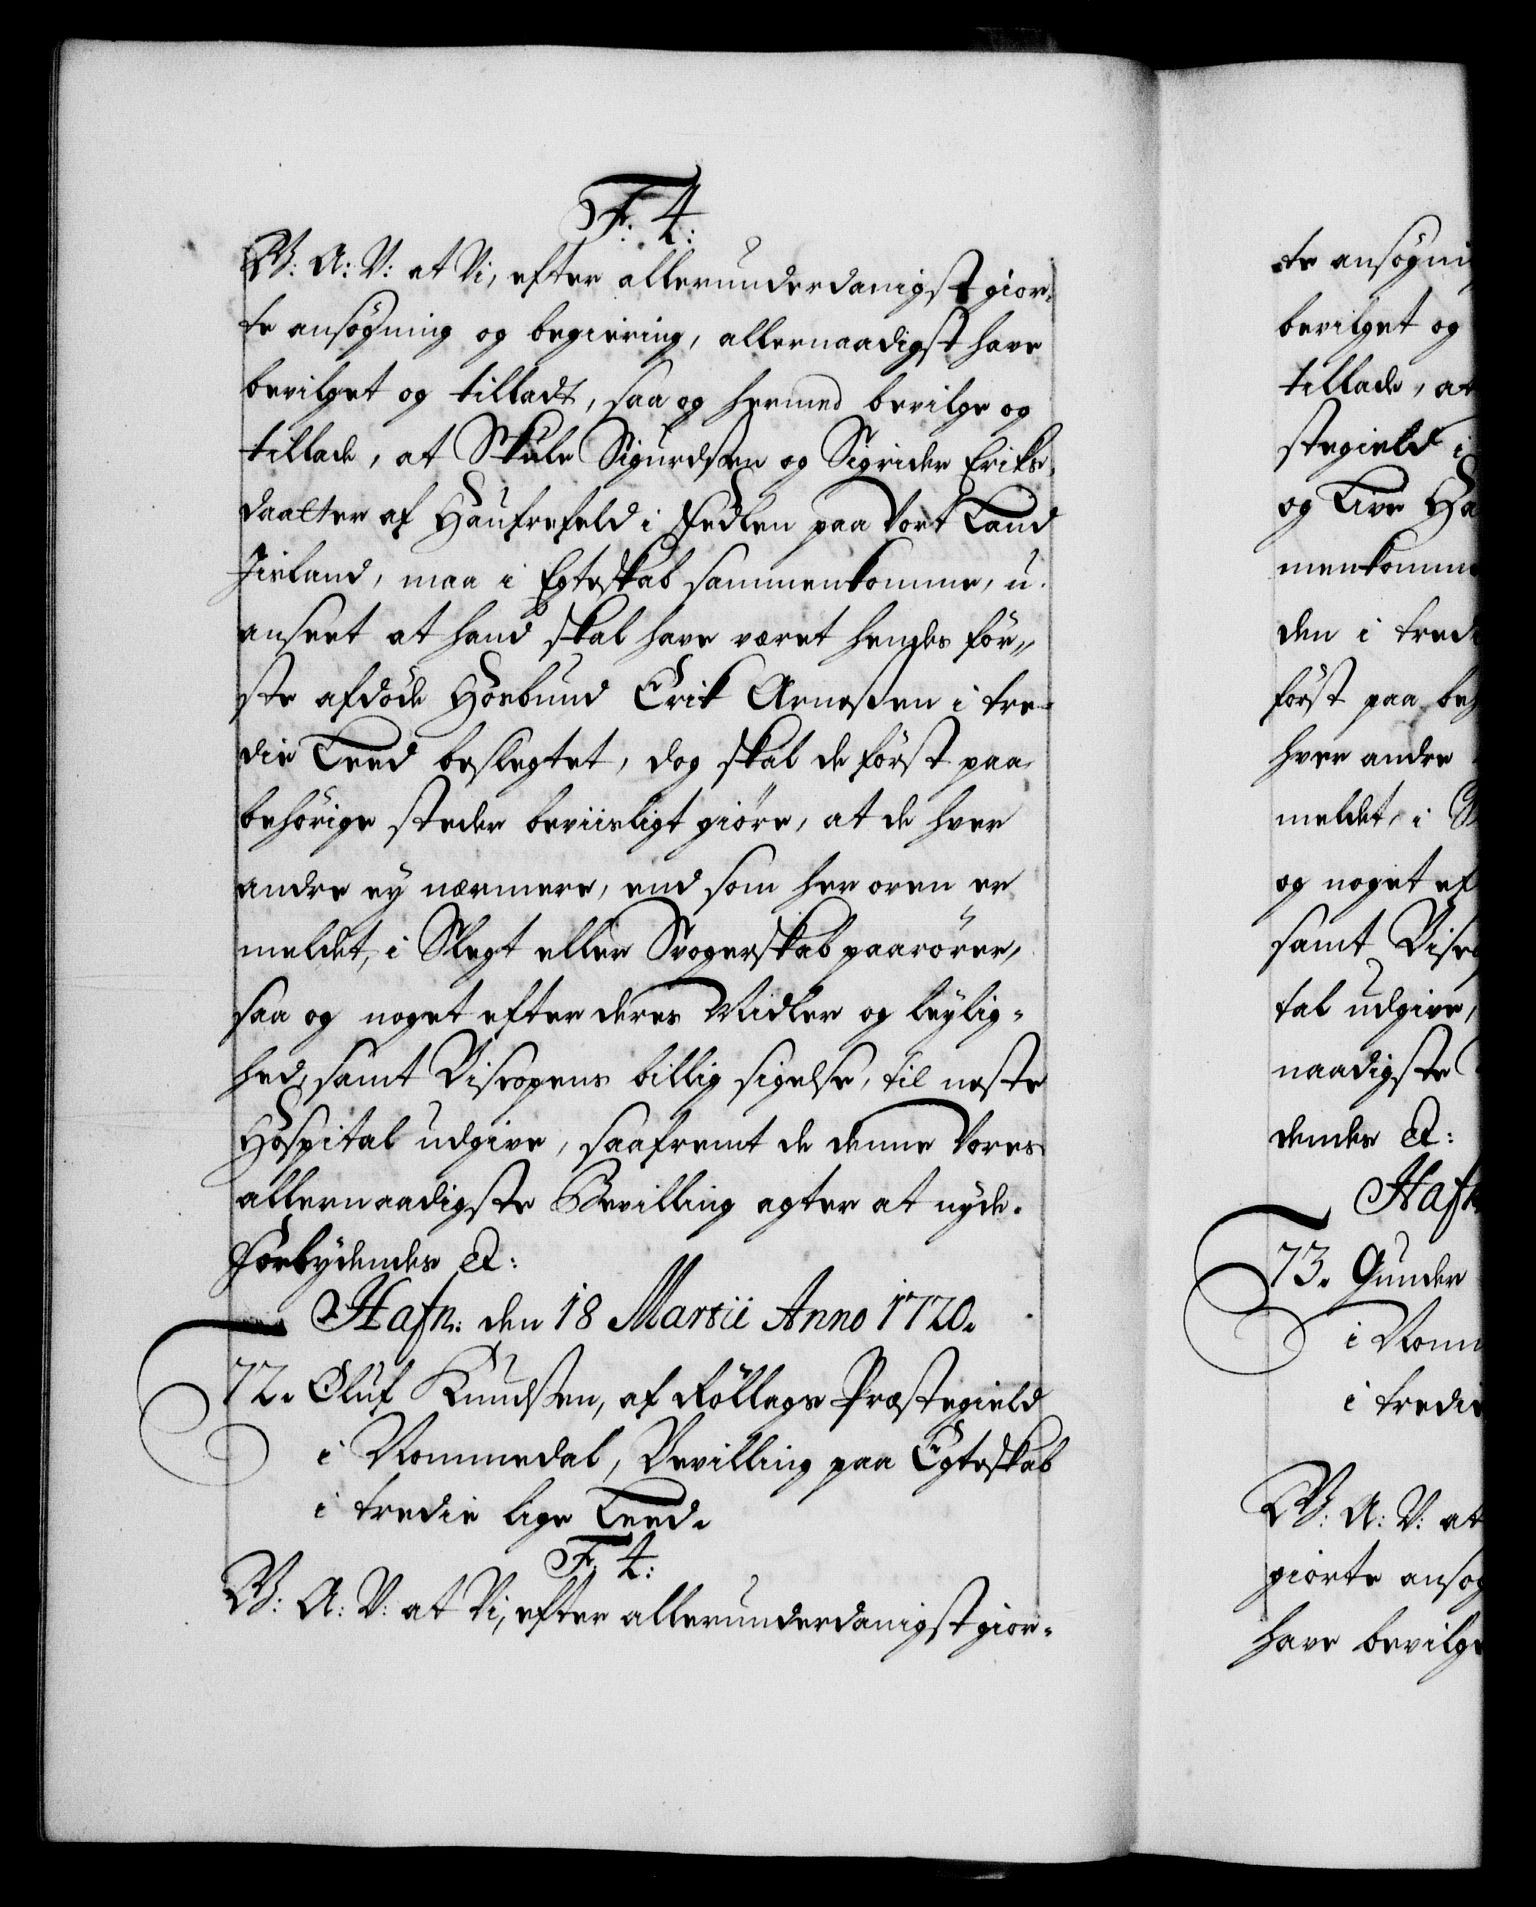 F. 4:
W: A: V: at Vi, efter allerunderdanigst gior-
te ansøgning og begiering, allernaadigst have
bevilget og tilladt, saa og hermed bevilge og
tillade, at Skule Sigurdsen og Sigrider Eriks-
daatter af i paa Vort Land
Jisland, maa i Egteskab sammenkomme, u-
anseet at hand skal have været hendes før-
ste afdøde Hosbund Erik Arnesen i tre-
die Leed beslegtet, dog skal de først paa
behørige steder beviisligt giøre, at de hver
andre ey nærmere, end som her oven er
meldet, i Slegt eller Svogerskab paarører,
saa og noget efter deres Midler og leylig-
hed, samt Biscopens billig sigelse, til neste
Hospital udgive, saafremt de denne Vores
allernaadigste Bevilling agter at nyde.
Forbydendes &:
Hafn: den 18 Martii Anno 1720.
72. Oluf Knudsen, af Rollags Præstegield
i Nommedal, Bevilling paa Egteskab
i tredie lige Leed.
F. 4:
W: A: V: at Vi, efter allerunderdanigst gior-
te ansøgni
bevilget og
tillade, at
stegield i
og Live Ha
menkomme
den i tredi
først paa beh
hver andre
meldet, i S
og noget ef
samt Bisco
tal udgive,
naadigste
dendes &:
Hafn
73. Gunder
i Nomm
i tredie
W: A: V: at
giorte ansøg
have bevilge